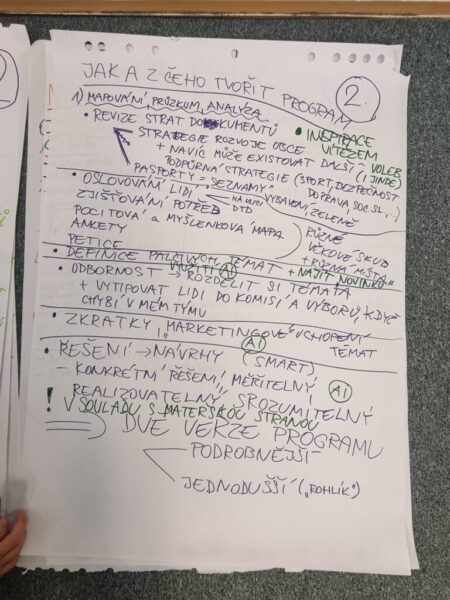 JAK A Z ČEHO TVOŘIT PROGRAM
2.
1) MAPOVÁNÍ, PRŮZKUM, ANALÝZA
• REVIZE STRAT. DOKUMENTŮ
• INSPIRACE VÍTĚZEM VOLEB (I JINDE)
STRATEGIE ROZVOJE OBCE
+ NAVÍC MŮŽE EXISTOVAT DALŠÍ
PODPŮRNÁ STRATEGIE (SPORT, BEZPEČNOST
DOPRAVA SOC. SL., ...)
PASPORTY = "SEZNAMY"
VYBAVENÍ, ZELENĚ
• OSLOVOVÁNÍ LIDÍ
NA ULICI
DTD
ZJIŠŤOVÁNÍ POTŘEB
POCITOVÁ a MYŠLENKOVÁ MAPA
ANKETY
PETICE
RŮZNÉ
VĚKOVÉ SKUP.
+ RŮZNÁ MÍSTA
• DEFINICE PALČIVÝCH TÉMAT + NAJÍT "NOVINKU"
VYUŽITÍ AI
• ODBORNOST → ROZDĚLIT SI TÉMATA
+ VYTIPOVAT LIDI DO KOMISÍ A VÝBORŮ, KDYŽ
CHYBÍ V MÉM TÝMU
• ZKRATKY, "MARKETINGOVÉ" UCHOPENÍ
TÉMAT
AI
• ŘEŠENÍ → NÁVRHY (SMART)
– KONKRÉTNÍ ŘEŠENÍ, MĚŘITELNÝ, AI
REALIZOVATELNÝ, SROZUMITELNÝ
! V SOULADU S MATEŘSKOU STRANOU
DVĚ VERZE PROGRAMU
PODROBNĚJŠÍ
JEDNODUŠŠÍ ("ROHLÍK")